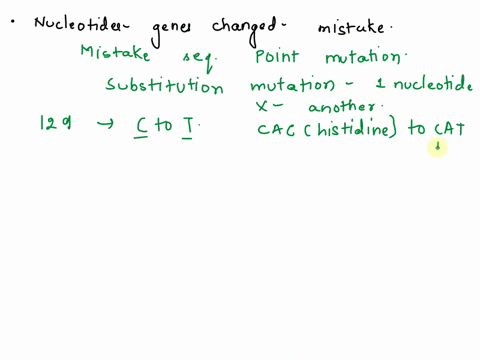 • Nucleotides- genes changed- mistake.
Mistake seq. Point mutation.
Substitution mutation - 1 nucleotide
X- another.
129 → C to T. CAC (histidine) to CAT